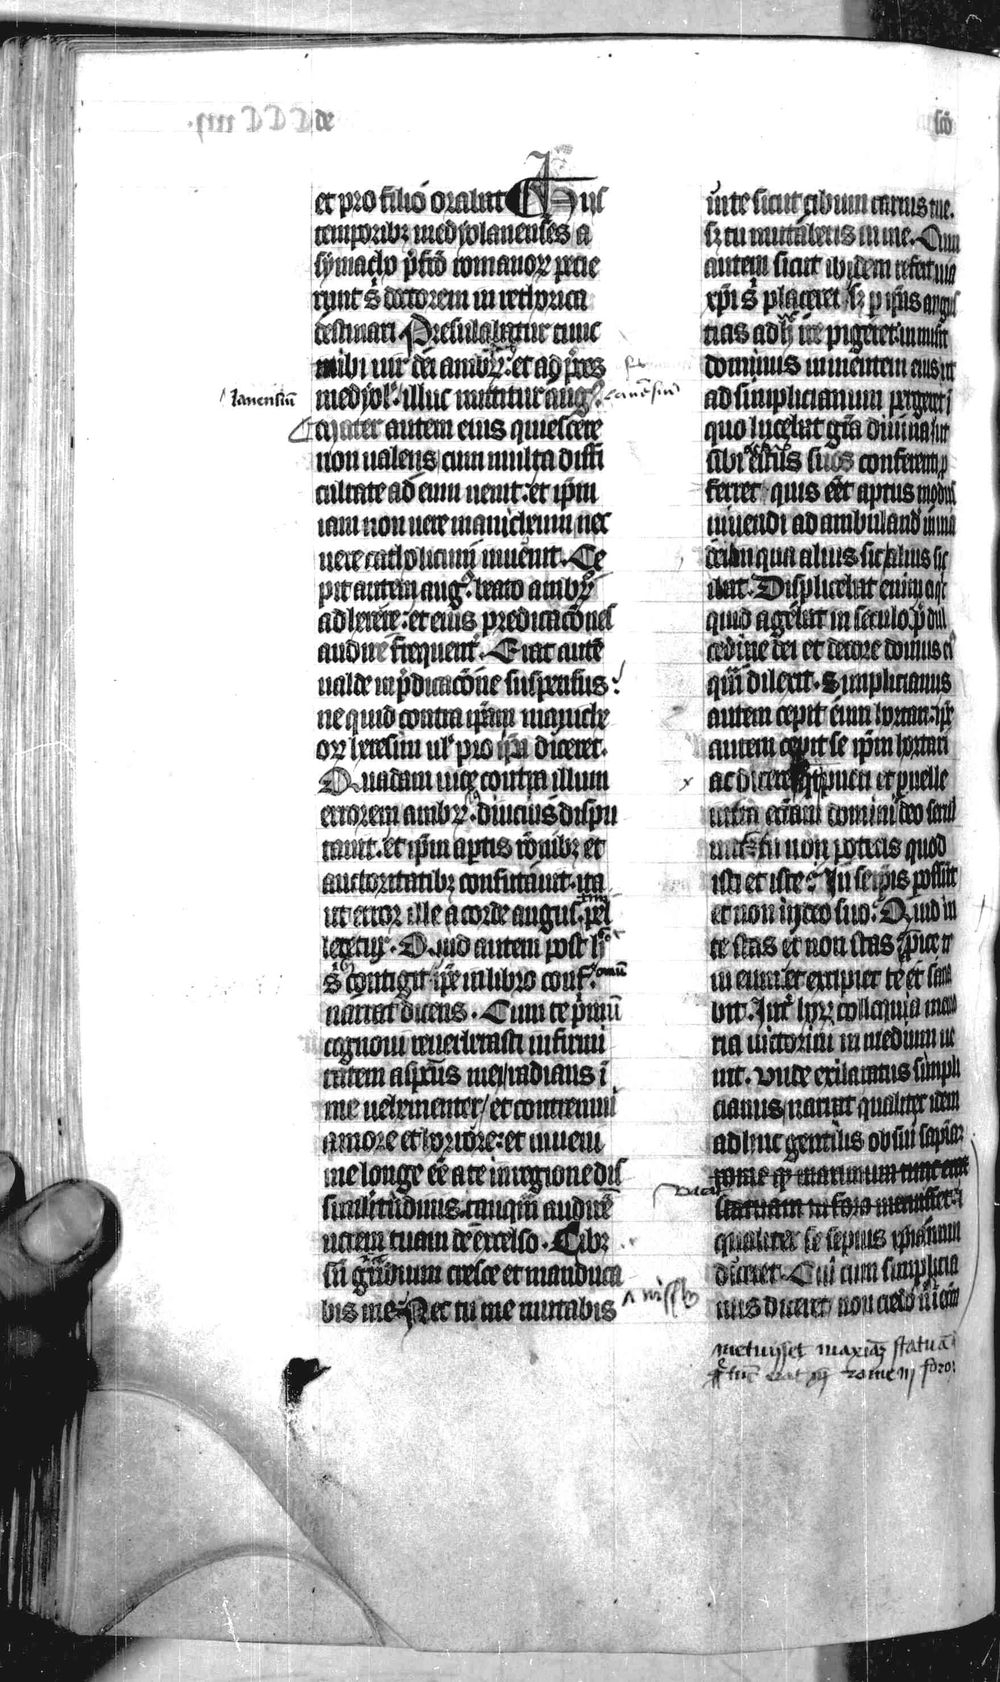 de
scō
et pro filio orabat Hiis
temporibꝫ medyolanenses a
symacho p̄fcō romanoꝝ petie
runt s̄ doctorem in rethorica
destinari Presulabatur tunc
inibi uir dei ambꝛ. et ad p̄ces
medyol. illuc mittitur augꝰ.
Mater autem eius quiescere
non ualens cum multa diffi
cultate ad eum uenit. et ip̄m
iam non uere manicheum nec
uere catholicum inuenit. Ce
pit autem augꝰ. beato ambꝛ
adherere: et eius predicacōnes
audire frequent̄. Erat autē
ualde in p̄dicacōne suspensus.
ne quid contra ip̄am maniche
oꝝ heresim ul' pro ip̄a diceret.
Quadam uice contra illum
errorem ambꝛ. diucius dispu
tauit. et ip̄m aptis rōnibꝫ et
auctoritatibꝫ confutauit. ita
ut error ille a corde augus. pel
leretur. Quid autem post h̄
s̄ contigit ip̄e in libro conf.
narrat dicens. Cum te p̄mū
cognoui reuerberasti infirmi
tatem aspectus mei radians ī
me uehementer et contremui
amore et horrore: et inueni
me longe eē a te in regione dis
similitudinis. tanquā audirē
uocem tuam de excelso. Cibꝫ
sū grandium cresce et manduca
bis me. Nec tu me mutabis
in te sicut cibum carnis tue.
sꝫ tu mutaberis in me. Cum
autem sicut ibidem refert uia
xp̄i s̄ placeret sꝫ p ip̄as angus
tias adhuc ire pigeret. inmisit
dominus in mentem eius ut
ad simplicianum pergeret ī
quo lucebat grā diuina ut
sibi estus suos conferenti p
ferret quis eēt aptus modus
uiuendi ad ambuland' in uia
dei in qua alius sic alius sic
ibat. Displicebat enim ei qc̄
quid agebat in seculo. p̄ dul
cedine dei et decore domus ei'
quā dilexit. Simplicianus
autem cepit eum hortari. ip̄e
autem cepit se ip̄m hortari
ac dicere q̄t pueri et puelle
infra eccl'iam domini deo serui
unt. tu non poteris quod
isti et iste? An in seip̄is possūt
et non in deo suo? Quid in
te stas et non stas. p̄ice te
in eum. et excipiet te et sana
bit. Int̄ hoꝝ colloquia memo
ria uictorini in medium ue
nit. Unde exilaratus simpli
cianus narrat qualiter idem
adhuc gentilis ob sui sapiam
rome qꝫ maximum tunc erat
statuam in foro meruisset. ⁊
qualiter se sepius xp̄ianum
diceret. Cui cum simplicia
nus diceret non credo n̄ eū
lanensiū
omū
nisi
meruisset maxiāꝫ statuā
qꝫ tūc erat rome in foro.